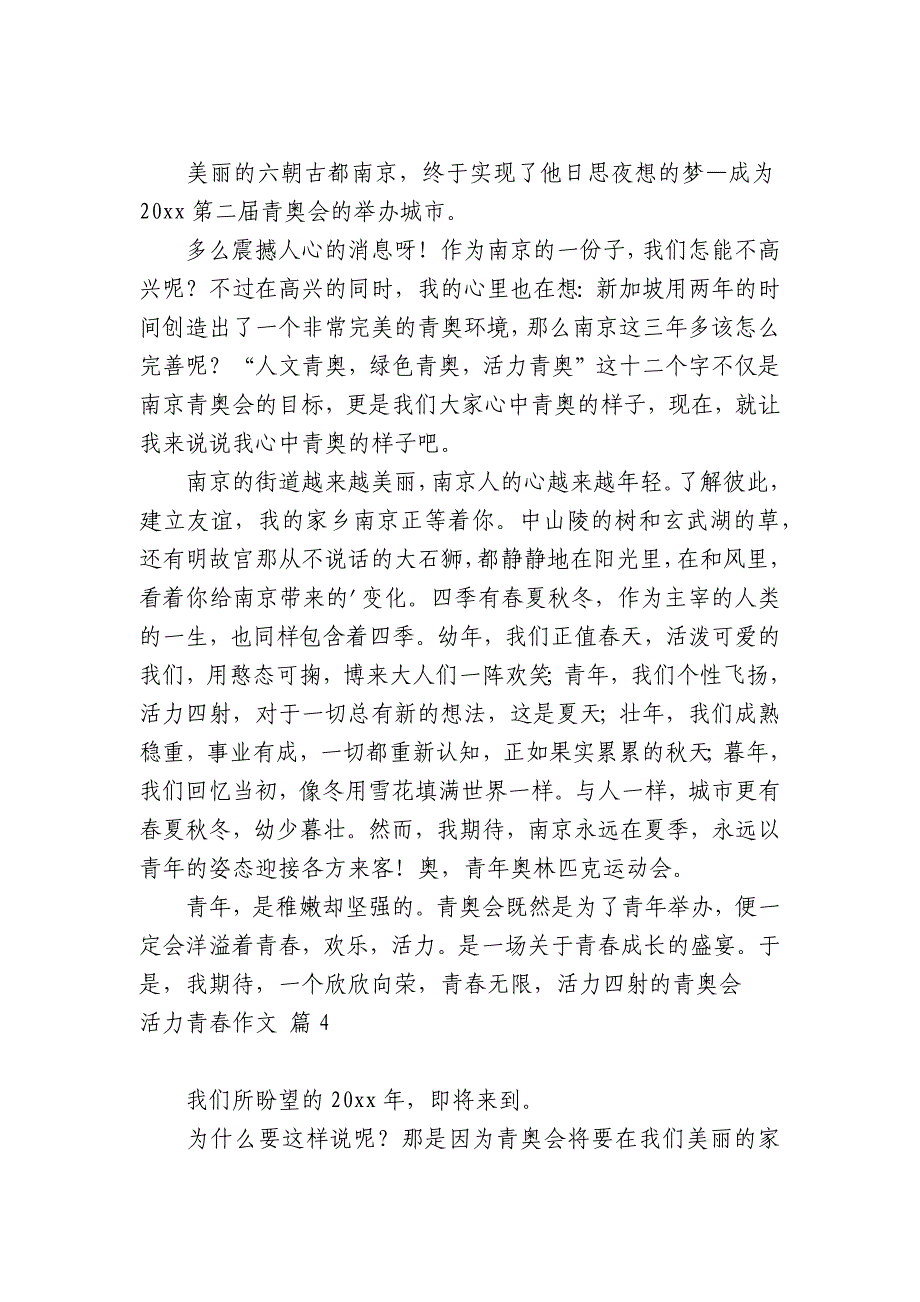 美丽的六朝古都南京，终于实现了他日思夜想的梦—成为
20xx 第二届青奥会的举办城市。
多么震撼人心的消息呀！作为南京的一份子，我们怎能不高
兴呢？不过在高兴的同时，我的心里也在想：新加坡用两年的时
间创造出了一个非常完美的青奥环境，那么南京这三年多该怎么
完善呢？“人文青奥，绿色青奥，活力青奥”这十二个字不仅是
南京青奥会的目标，更是我们大家心中青奥的样子，现在，就让
我来说说我心中青奥的样子吧。
南京的街道越来越美丽，南京人的心越来越年轻。了解彼此，
建立友谊，我的家乡南京正等着你。中山陵的树和玄武湖的草，
还有明故宫那从不说话的大石狮，都静静地在阳光里，在和风里，
看着你给南京带来的′变化。四季有春夏秋冬，作为主宰的人类
的一生，也同样包含着四季。幼年，我们正值春天，活泼可爱的
我们，用憨态可掬，博来大人们一阵欢笑；青年，我们个性飞扬，
活力四射，对于一切总有新的想法，这是夏天；壮年，我们成熟
稳重，事业有成，一切都重新认知，正如果实累累的秋天；暮年，
我们回忆当初，像冬用雪花填满世界一样。与人一样，城市更有
春夏秋冬，幼少暮壮。然而，我期待，南京永远在夏季，永远以
青年的姿态迎接各方来客！奥，青年奥林匹克运动会。
青年，是稚嫩却坚强的。青奥会既然是为了青年举办，便一
定会洋溢着青春，欢乐，活力。是一场关于青春成长的盛宴。于
是，我期待，一个欣欣向荣，青春无限，活力四射的青奥会
活力青春作文 篇 4
我们所盼望的 20xx 年，即将来到。
为什么要这样说呢？那是因为青奥会将要在我们美丽的家